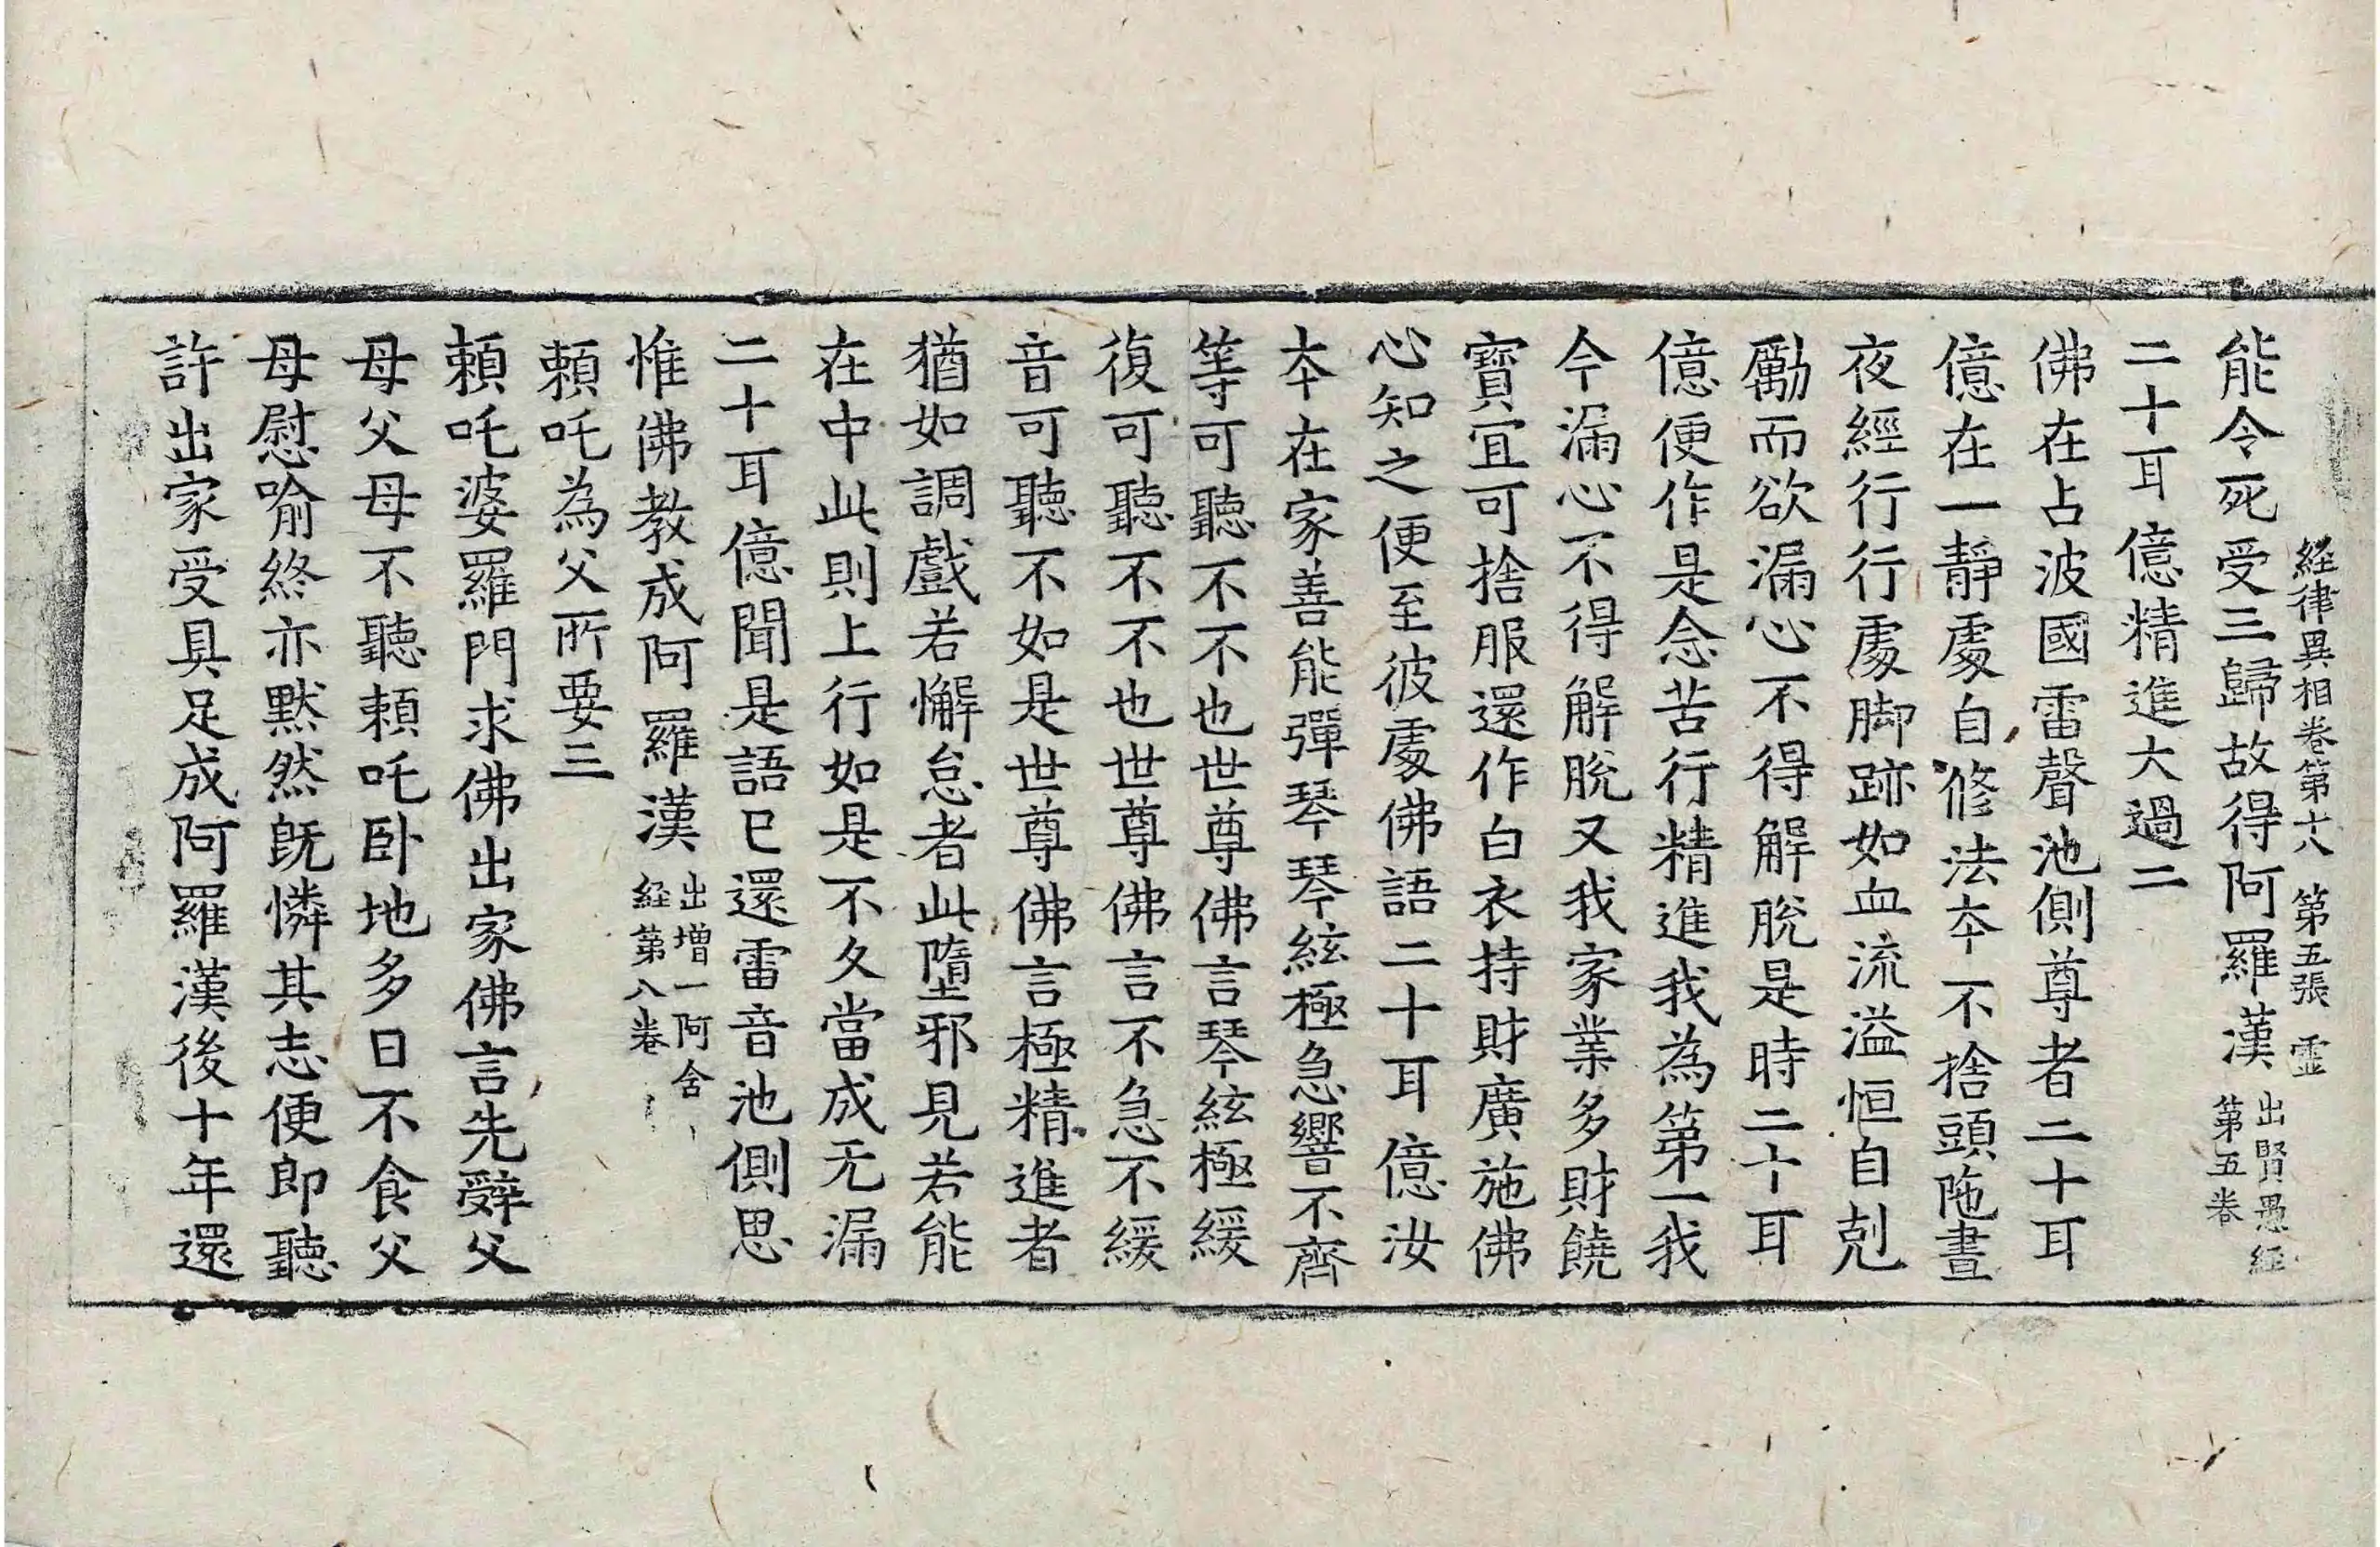 経律異相卷第十八 第五張 霊
能令死受三歸故得阿羅漢出賢愚経第五卷
二十耳億精進大過二
佛在占波國雷聲池側尊者二十耳
億在一靜處自修法夲不捨頭陁晝
夜經行行處脚跡如血流溢恒自剋
勵而欲漏心不得解脫是時二十耳
億便作是念苦行精進我為第一我
今漏心不得解脫又我家業多財饒
寶宜可捨服還作白衣持財廣施佛
心知之便至彼處佛語二十耳億汝
夲在家善能彈琴琴絃極急響不齊
等可聽不不也世尊佛言琴絃極緩
復可聽不不也世尊佛言不急不緩
音可聽不如是世尊佛言極精進者
猶如調戲若懈怠者此墮邪見若能
在中此則上行如是不久當成无漏
二十耳億聞是語已還雷音池側思
惟佛教成阿羅漢出増一阿含経第八卷
頼吒為父所要三
頼吒婆羅門求佛出家佛言先辤父
母父母不聽頼吒卧地多日不食父
母慰喻終亦默然旣憐其志便即聽
許出家受具足成阿羅漢後十年還